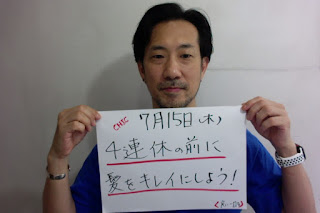 CHIC 7月15日(木)
4連休の前に
髪をキレイにしよう!